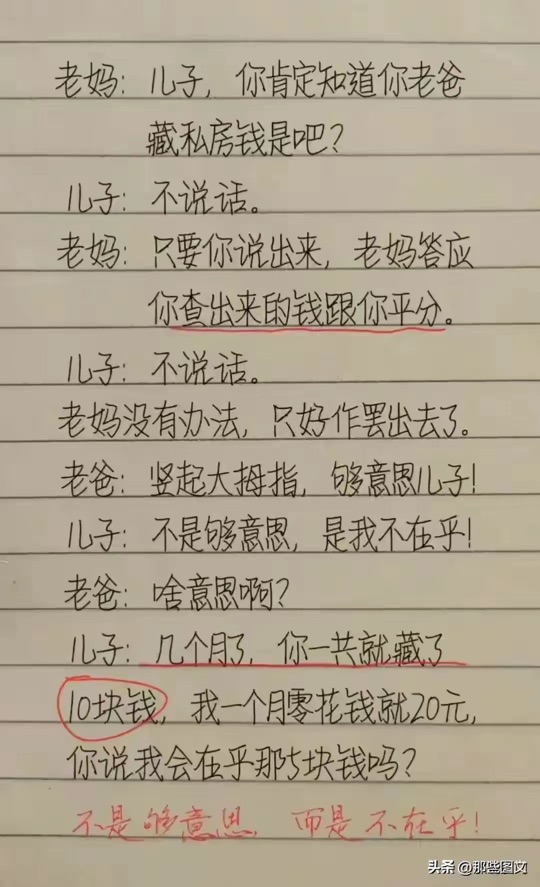 老妈：儿子，你肯定知道你老爸
藏私房钱是吧？
儿子：不说话。
老妈：只要你说出来，老妈答应
你查出来的钱跟你平分。
儿子：不说话。
老妈没有办法，只好作罢出去了。
老爸：竖起大拇指，够意思儿子！
儿子：不是够意思，是我不在乎！
老爸：啥意思啊？
儿子：几个月了，你一共就藏了
10块钱，我一个月零花钱就20元，
你说我会在乎那5块钱吗？
不是够意思，而是不在乎！
头条 @那些图文